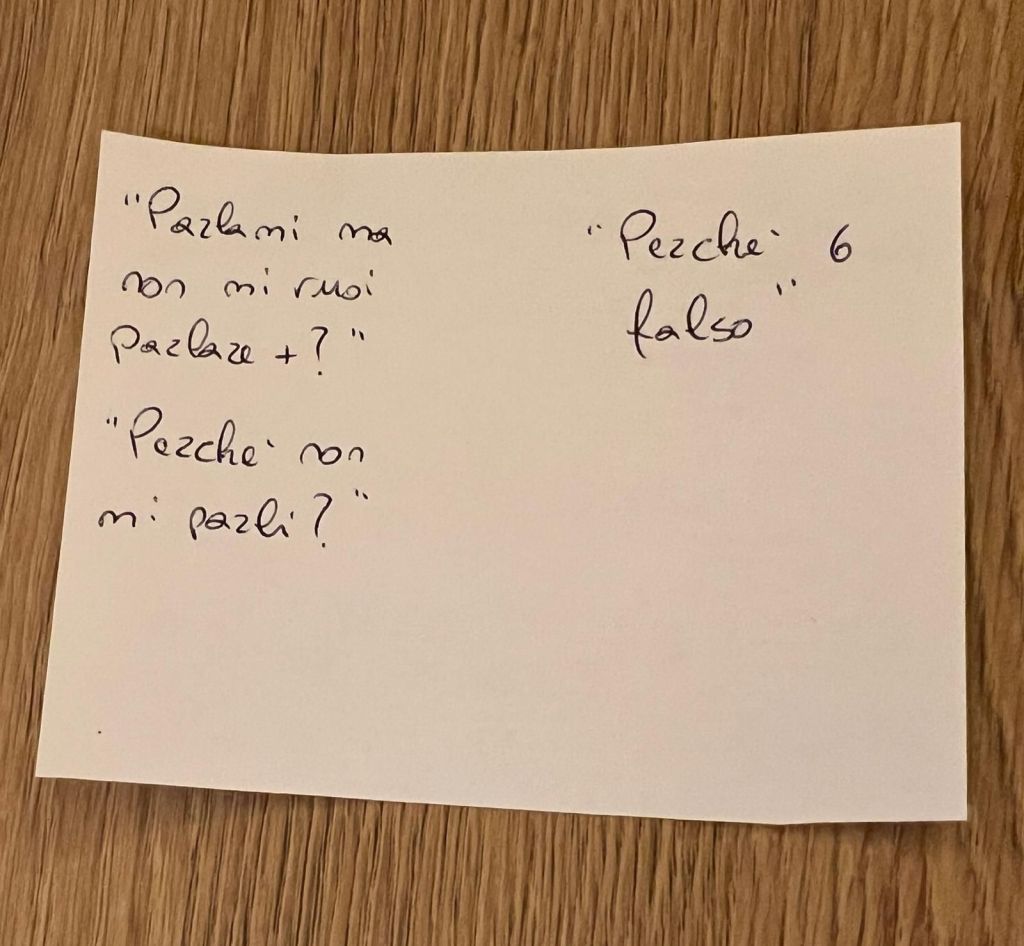 "Parlami ma
non mi vuoi
parlare + ? "
"Perché non
mi parli ? "
"Perché 6
falso "